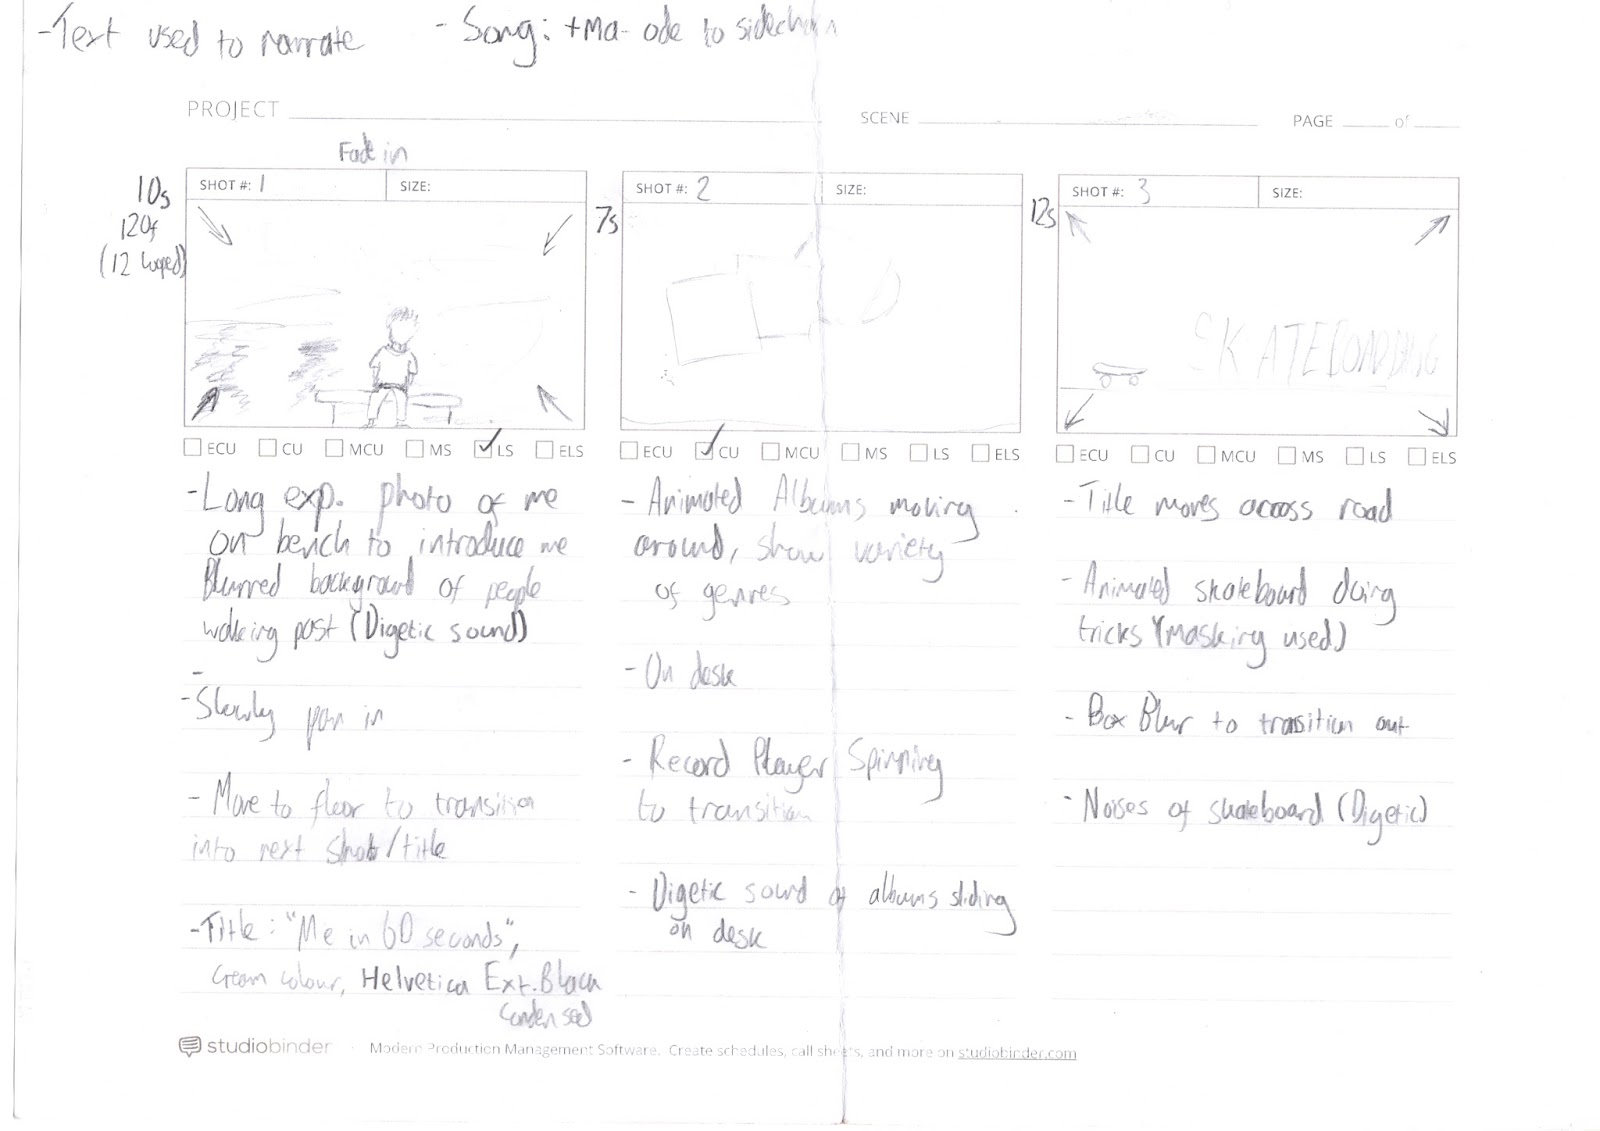 -Text used to narrate
- Song: tma- ode to sidechain
PROJECT
SCENE
PAGE of
Fade in
10s
120f
(12 looped)
SHOT #: 1 SIZE:
ECU CU MCU MS LS ELS
-Long exp. photo of me
on bench to introduce me
Blurred background of people
walking past (Digetic sound)
-
-Slowly pan in
- Move to floor to transition
into next shot/title
-Title: "Me in 60 seconds",
cream colour, Helvetica Ext. Black
Condensed
7s
SHOT #: 2 SIZE:
ECU CU MCU MS LS ELS
- Animated Albums moving
around, show variety
of genres
- On desk
- Record Player Spinning
to transition
- Digetic sound of albums sliding
on desk
12s
SHOT #: 3 SIZE:
SKATEBOARDING
ECU CU MCU MS LS ELS
-Title moves across road
- Animated skateboard doing
tricks (masking used)
- Box Blur to transition out
- Noises of skateboard (Digetic)
studiobinder · Modern Production Management Software. Create schedules, call sheets, and more on studiobinder.com